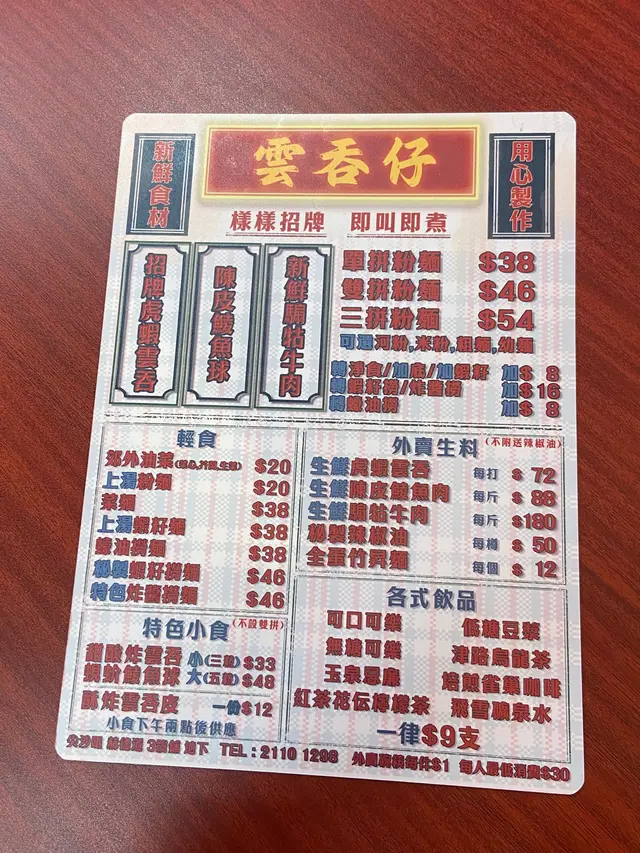 新鮮食材
雲吞仔
用心製作
樣樣招牌 即叫即煮
招牌虎蝦雲吞
陳皮鯪魚球
新鮮騸牯牛肉
單拼粉麵 $38
雙拼粉麵 $46
三拼粉麵 $54
可選河粉,米粉,粗麵,幼麵
轉淨食/加底/加蝦籽 加$ 8
轉蝦籽撈/炸醬撈 加$16
轉蠔油撈 加$ 8
輕食
郊外油菜 $20
上湯粉麵 $20
菜麵 $38
上湯蝦籽麵 $38
蠔油撈麵 $38
秘製蝦籽撈麵 $46
特色炸醬撈麵 $46
特色小食 (不設雙拼)
酸炸雲吞 小(三粒) $33
蜆蚧鯪魚球 大(五粒) $48
酥炸雲吞皮 一份$12
小食下午兩點後供應
外賣生料 (不附送辣椒油)
生鮮虎蝦雲吞 每打 $ 72
生鮮陳皮鯪魚肉 每斤 $ 88
生鮮騸牯牛肉 每斤 $180
秘製辣椒油 每樽 $ 50
全蛋竹昇麵 每個 $ 12
各式飲品
可口可樂 低糖豆漿
無糖可樂 津路烏龍茶
玉泉忌廉 焙煎雀巢咖啡
紅茶花伝檸檬茶 飛雪礦泉水
一律$9支
尖沙咀 3號舖 地下 TEL:2110 1298 外賣每件$1 每人最低消費$30